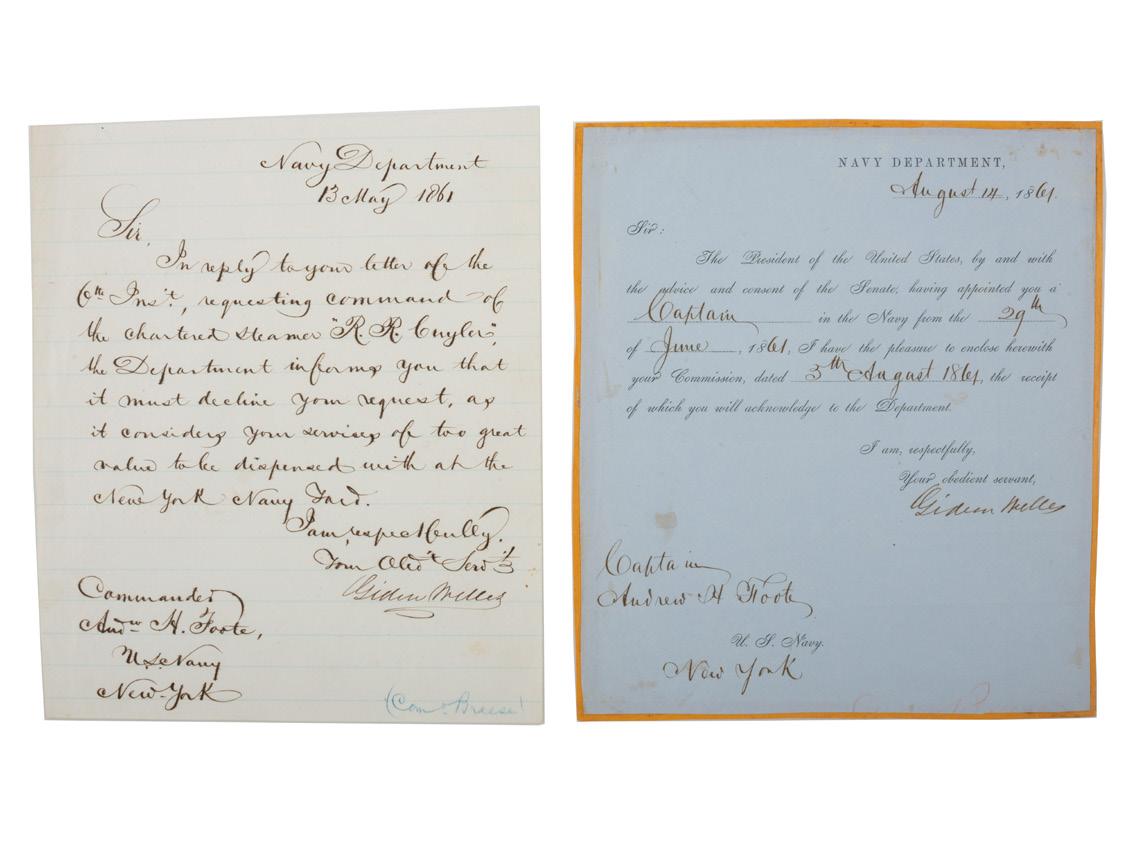 Navy Department
13 May 1861
Sir,
In reply to your letter of the
6th Inst., requesting command of
the chartered steamer "R. R. Cuyler",
the Department informs you that
it must decline your request, as
it considers your services of too great
value to be dispensed with at the
New York Navy Yard.
I am, respectfully,
Your Obdt Servt
Gideon Welles
Commander
Andw H. Foote,
U.S. Navy
New York
(Como Breese)
NAVY DEPARTMENT,
August 14, 1861.
Sir:
The President of the United States, by and with
the advice and consent of the Senate, having appointed you a
Captain in the Navy from the 29th
of June, 1861, I have the pleasure to enclose herewith
your Commission, dated 5th August 1861, the receipt
of which you will acknowledge to the Department.
I am, respectfully,
Your obedient servant,
Gideon Welles
Captain
Andrew H Foote
U. S. Navy.
New York